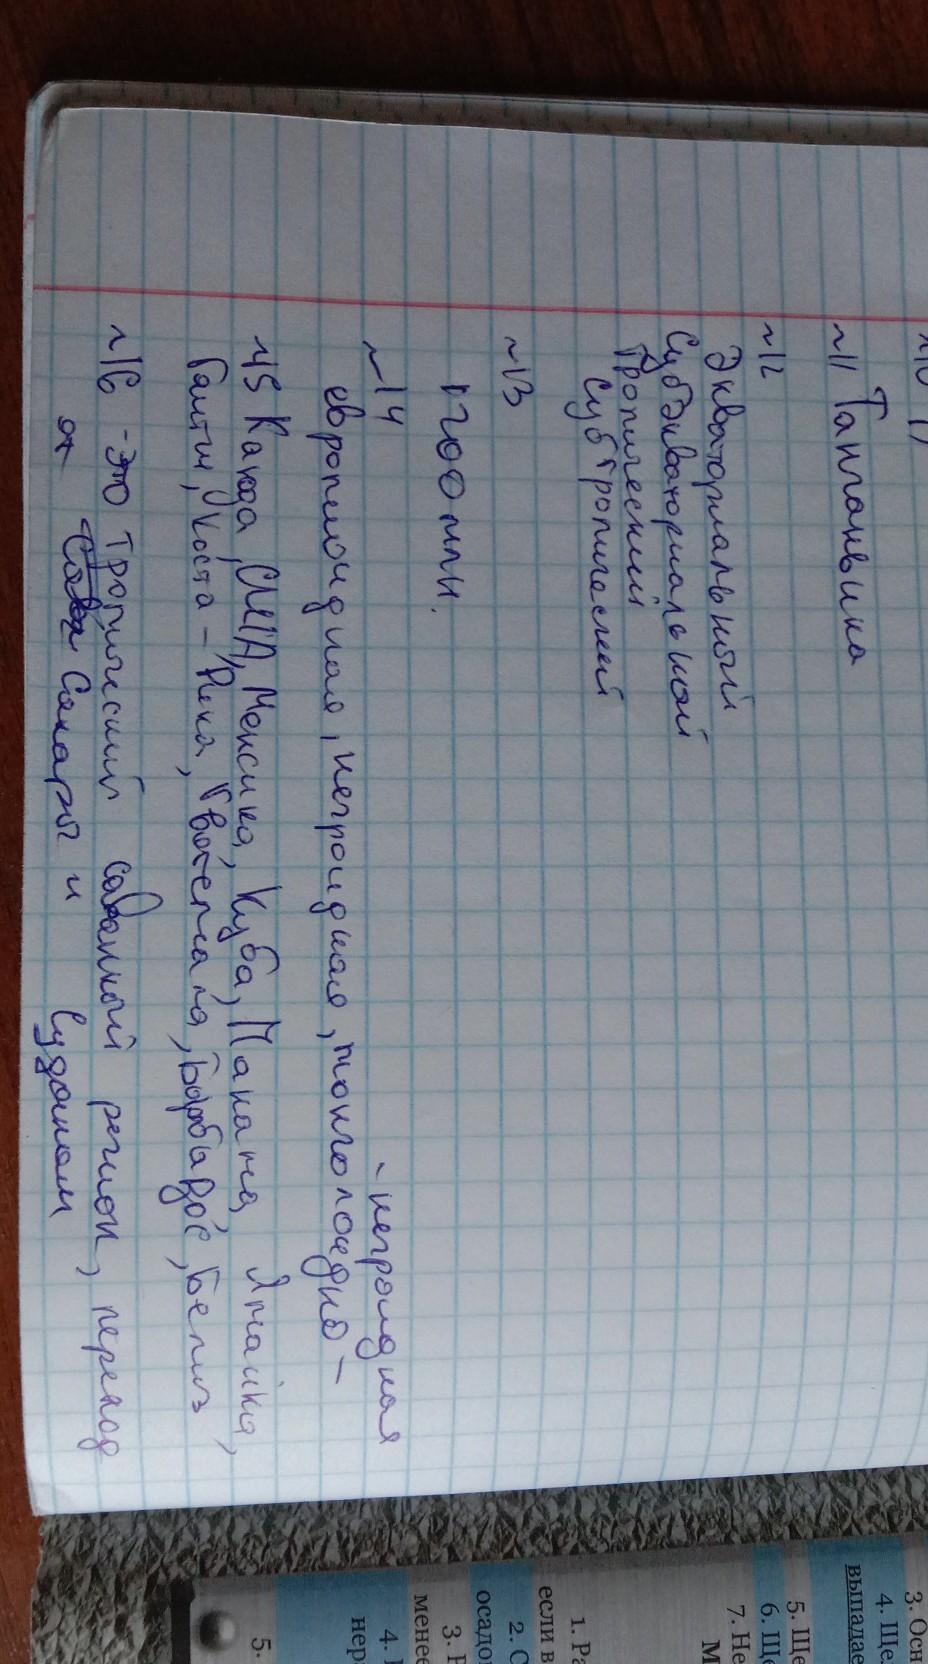 ~11 Танганьика
~12
Экваториальный
Субэкваториальной
Тропический
Субтропический
~13
1200 млн.
~14
-негроидная
европиоидная, негроидная, монголоидно-
~15 Канада, США, Мексика, Куба, Панама, Ямайка,
Гаити, Коста-Рика, Гватемала, Барбадос, Белиз
~16 - это тропический саванный регион, переход
от Сахары и Суданом
3. Осн
4. Ще
выпадае
5. Ще
6. Ще
7. Не
М
1. Ра
если в
2. С
осадо
3. Р
менее
4.
нер
5.